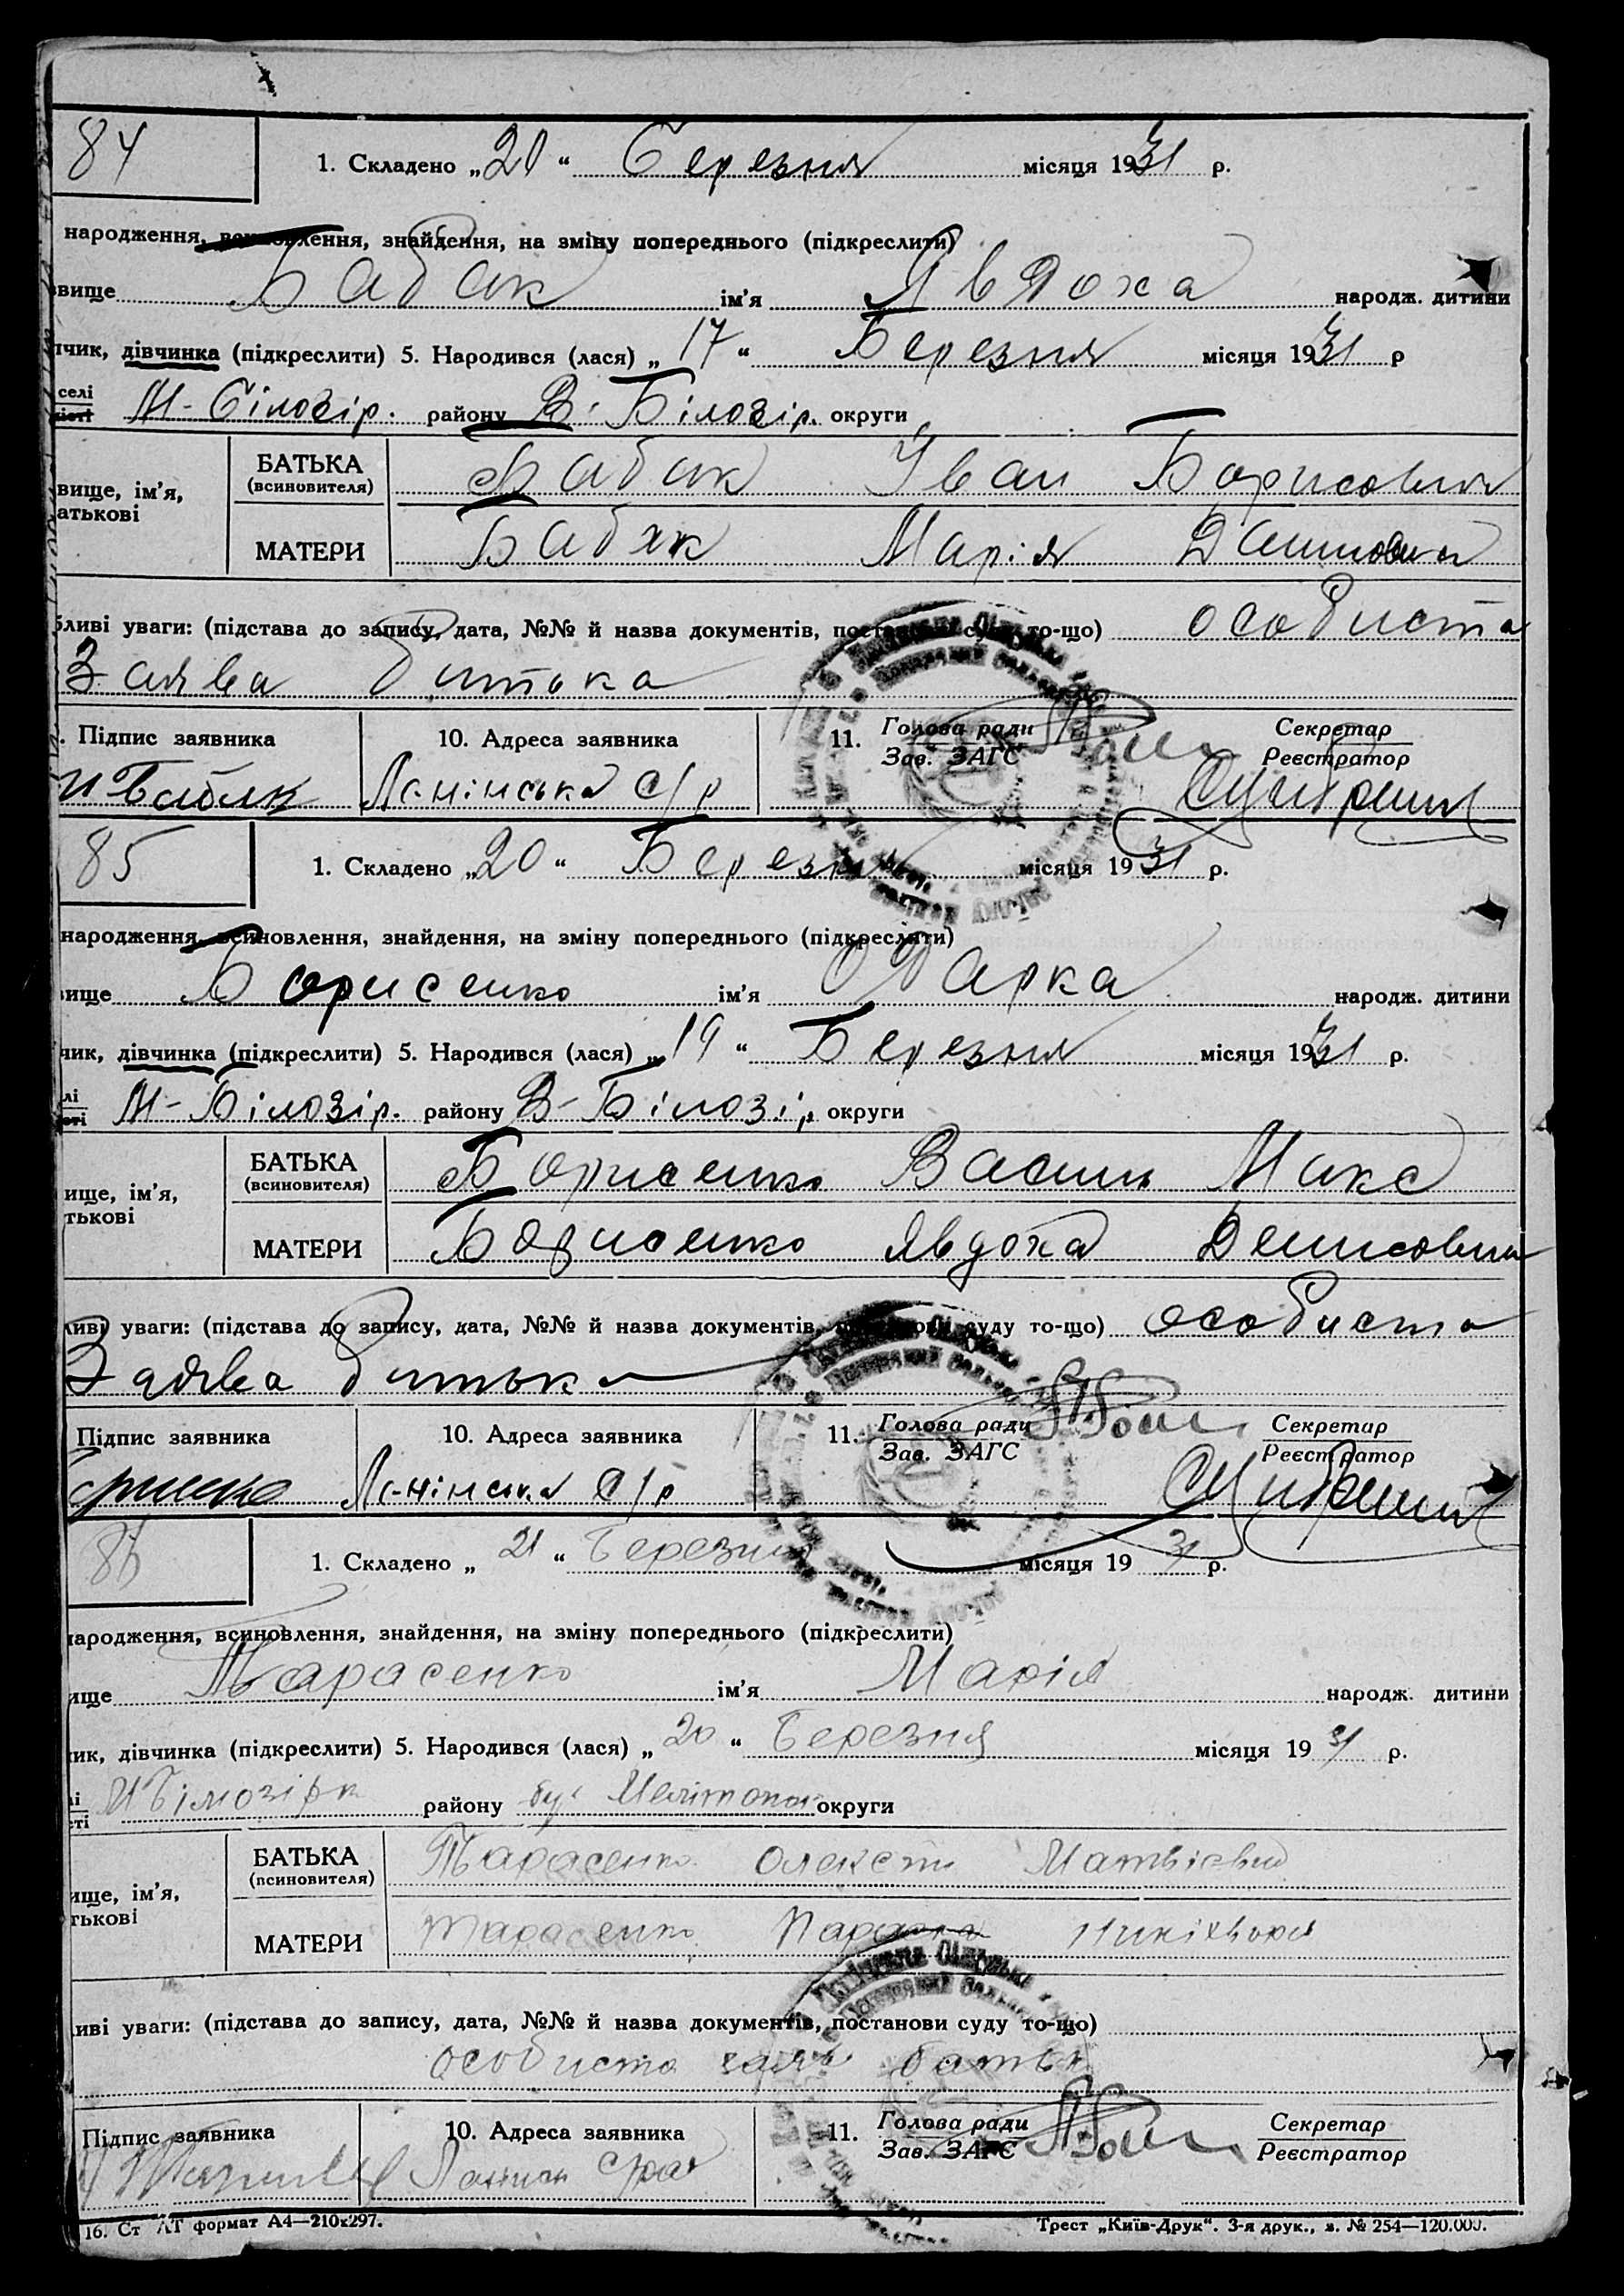 84
1. Складено „20“ Березня місяця 1931 р.
народження, всиновлення, знайдення, на зміну попереднього (підкреслити)
вище Бабак ім’я Явдоха народж. дитини
чик, дівчинка (підкреслити) 5. Народився (лася) „17“ Березня місяця 1931 р
селі М-Білозір. району В-Білозір. округи
вище, ім’я, атькові
БАТЬКА (всиновителя) Бабак Іван Борисович
МАТЕРИ Бабак Марія
бливі уваги: (підстава до запису, дата, №№ й назва документів, постанови суду то-що) особиста
Заява батька
. Підпис заявника 10. Адреса заявника 11. Голова ради Секретар
Зав. ЗАГС Реєстратор
Бабак Ленінська с/р
85
1. Складено „20“ Березня місяця 1931 р.
народження, всиновлення, знайдення, на зміну попереднього (підкреслити)
вище Борисенко ім’я Одарка народж. дитини
чик, дівчинка (підкреслити) 5. Народився (лася) „19“ Березня місяця 1931 р.
лі М-Білозір. району В-Білозір. округи
ище, ім’я, тькові
БАТЬКА (всиновителя) Борисенко Василь Макс
МАТЕРИ Борисенко Явдоха Денисовна
ливі уваги: (підстава до запису, дата, №№ й назва документів, постанови суду то-що) особиста
Заява батька
Підпис заявника 10. Адреса заявника 11. Голова ради Секретар
Зав. ЗАГС Реєстратор
Ленінська с/р
86
1. Складено „21“ Березня місяця 1931 р.
народження, всиновлення, знайдення, на зміну попереднього (підкреслити)
ище Тарасенко ім’я Марія народж. дитини
ик, дівчинка (підкреслити) 5. Народився (лася) „20“ Березня місяця 1931 р.
М Білозірка району був Мелітопол округи
ище, ім’я, тькові
БАТЬКА (всиновителя) Тарасенко Олексій Матвієвич
МАТЕРИ Тарасенко
иві уваги: (підстава до запису, дата, №№ й назва документів, постанови суду то-що)
особиста заява батька
Підпис заявника 10. Адреса заявника 11. Голова ради Секретар
Зав. ЗАГС Реєстратор
16. Ст АТ формат А4—210х297. Трест „Київ-Друк“. 3-я друк., з. № 254—120.000.